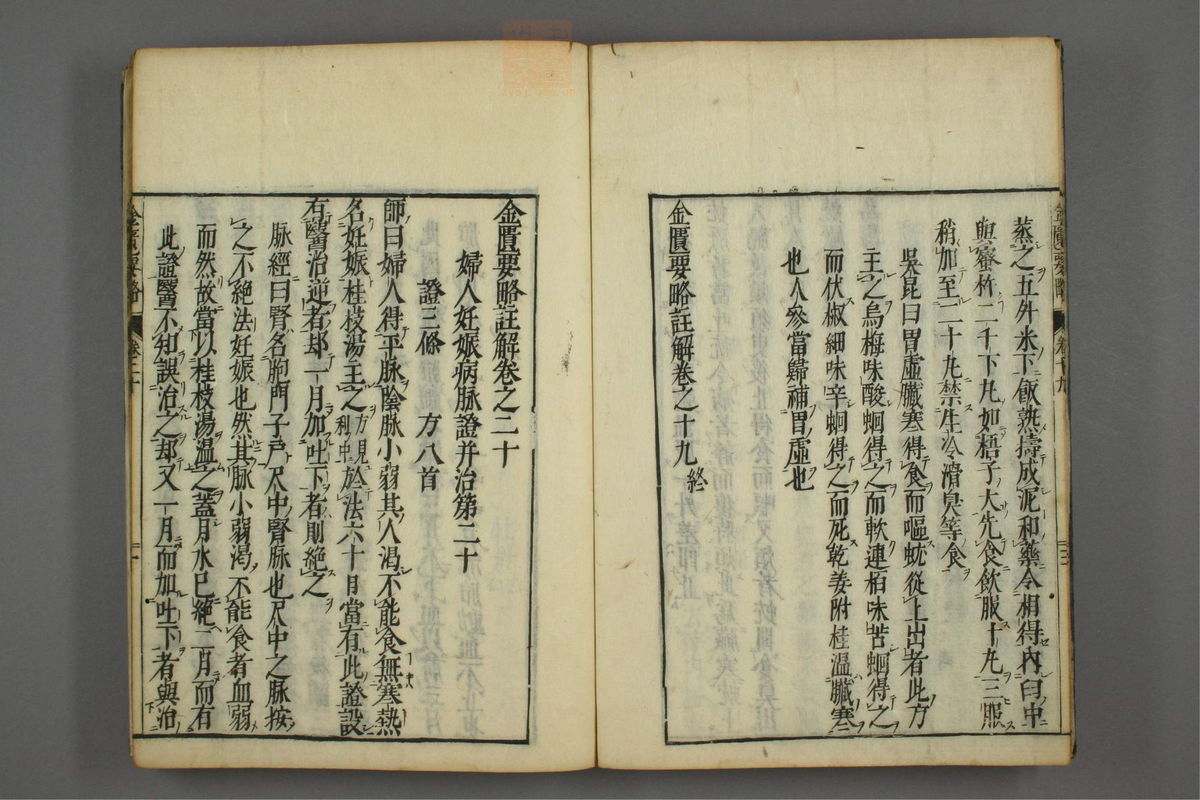 蒸之五升米下飯熟擣成泥和藥令相得內臼中
與蜜杵二千下丸如梧子大先食飲服十九三服
稍加至二十九禁生冷滑臭等食
吳昆曰胃虛臟寒得食而嘔蚘從上出者此方
主之烏梅味酸蛔得之而軟連栢味苦蛔得之
而伏椒細味辛蛔得之而死乾姜附桂溫臟寒
也人參當歸補胃虛也
金匱要略註解卷之十九 終
金匱要略註解卷之二十
婦人妊娠病脉證并治第二十
證三條 方八首
師曰婦人得平脉陰脉小弱其人渴不能食無寒熱
名妊娠桂枝湯主之方見利中於法六十日當有此證設
有醫治逆者却一月加吐下者則絕之
脉經曰腎名胞門子戶尺中腎脉也尺中之脉按
之不絕法妊娠也然其脉小弱渴不能食者血弱
而然故當以桂枝湯溫之蓋月水已絕二月而有
此證醫不知誤治之却又一月而加吐下者與治